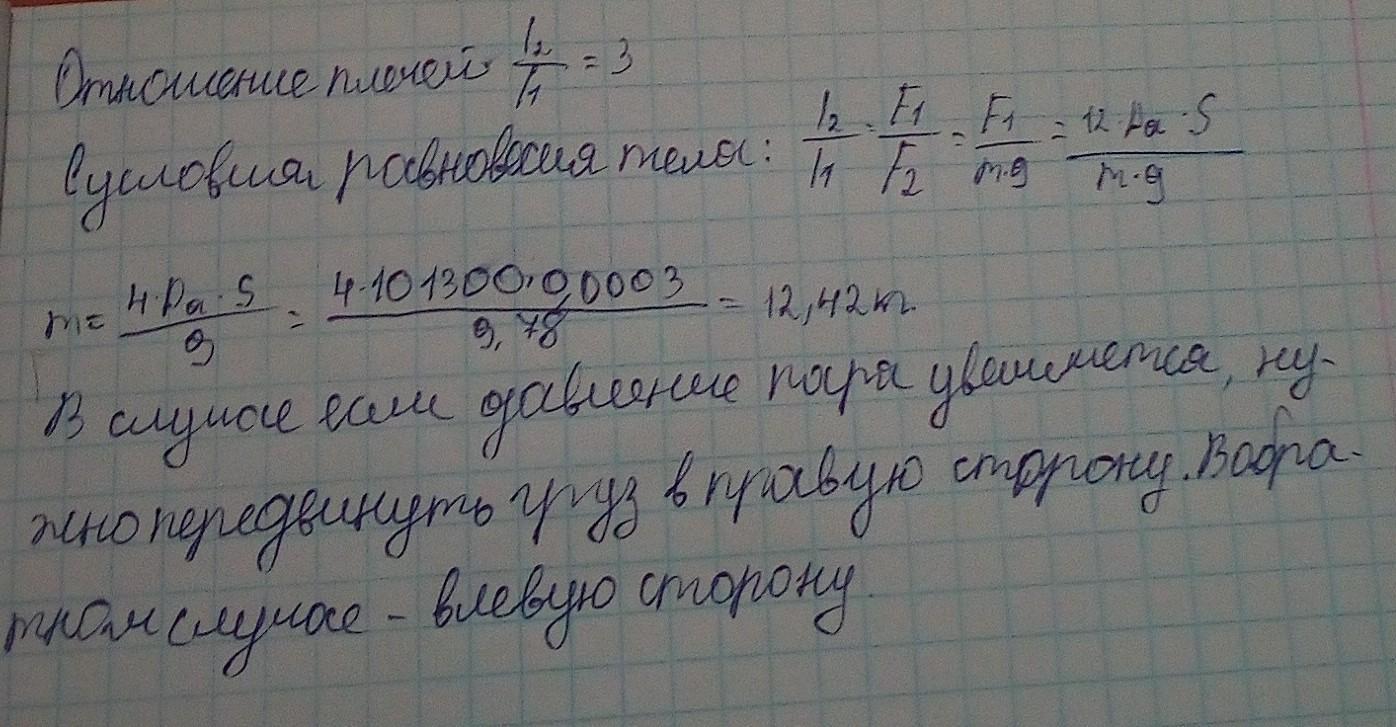 Отношение плечей l2/l1 = 3
С условия равновесия тела: l2/l1 = F1/F2 = F1/m·g = 12·Pa·S/m·g
m = 4·Pa·S/g = 4·101300·0,0003/9,78 = 12,42 кг.
В случае если давление пара увеличится, ну-
жно передвинуть груз в правую сторону. В обра-
тном случае - в левую сторону.